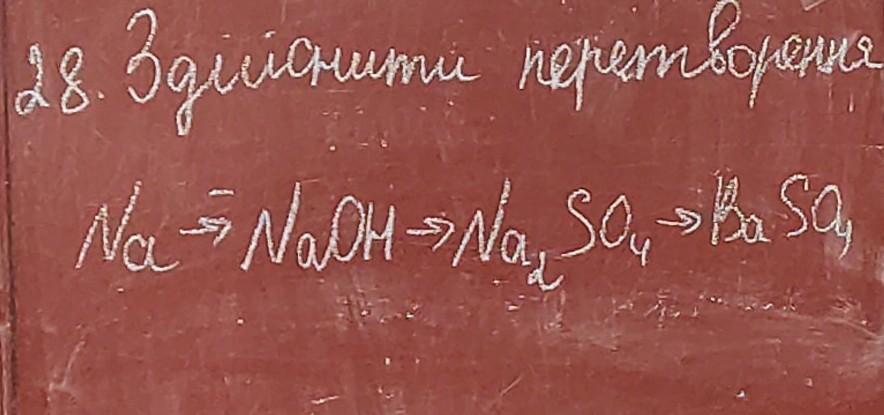 28. Здійснити перетворення
Na → NaOH → Na₂SO₄ → BaSO₄